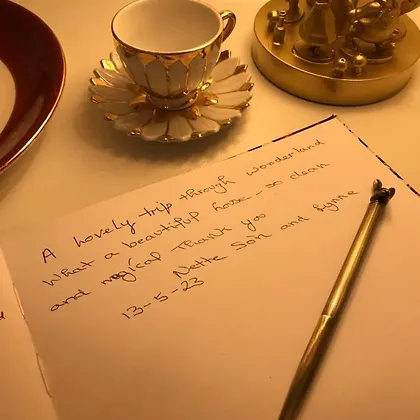 A lovely trip through wonderland
What a beautiful house - so clean
and magical Thank you
Nette Soin and Lynne
13-5-23